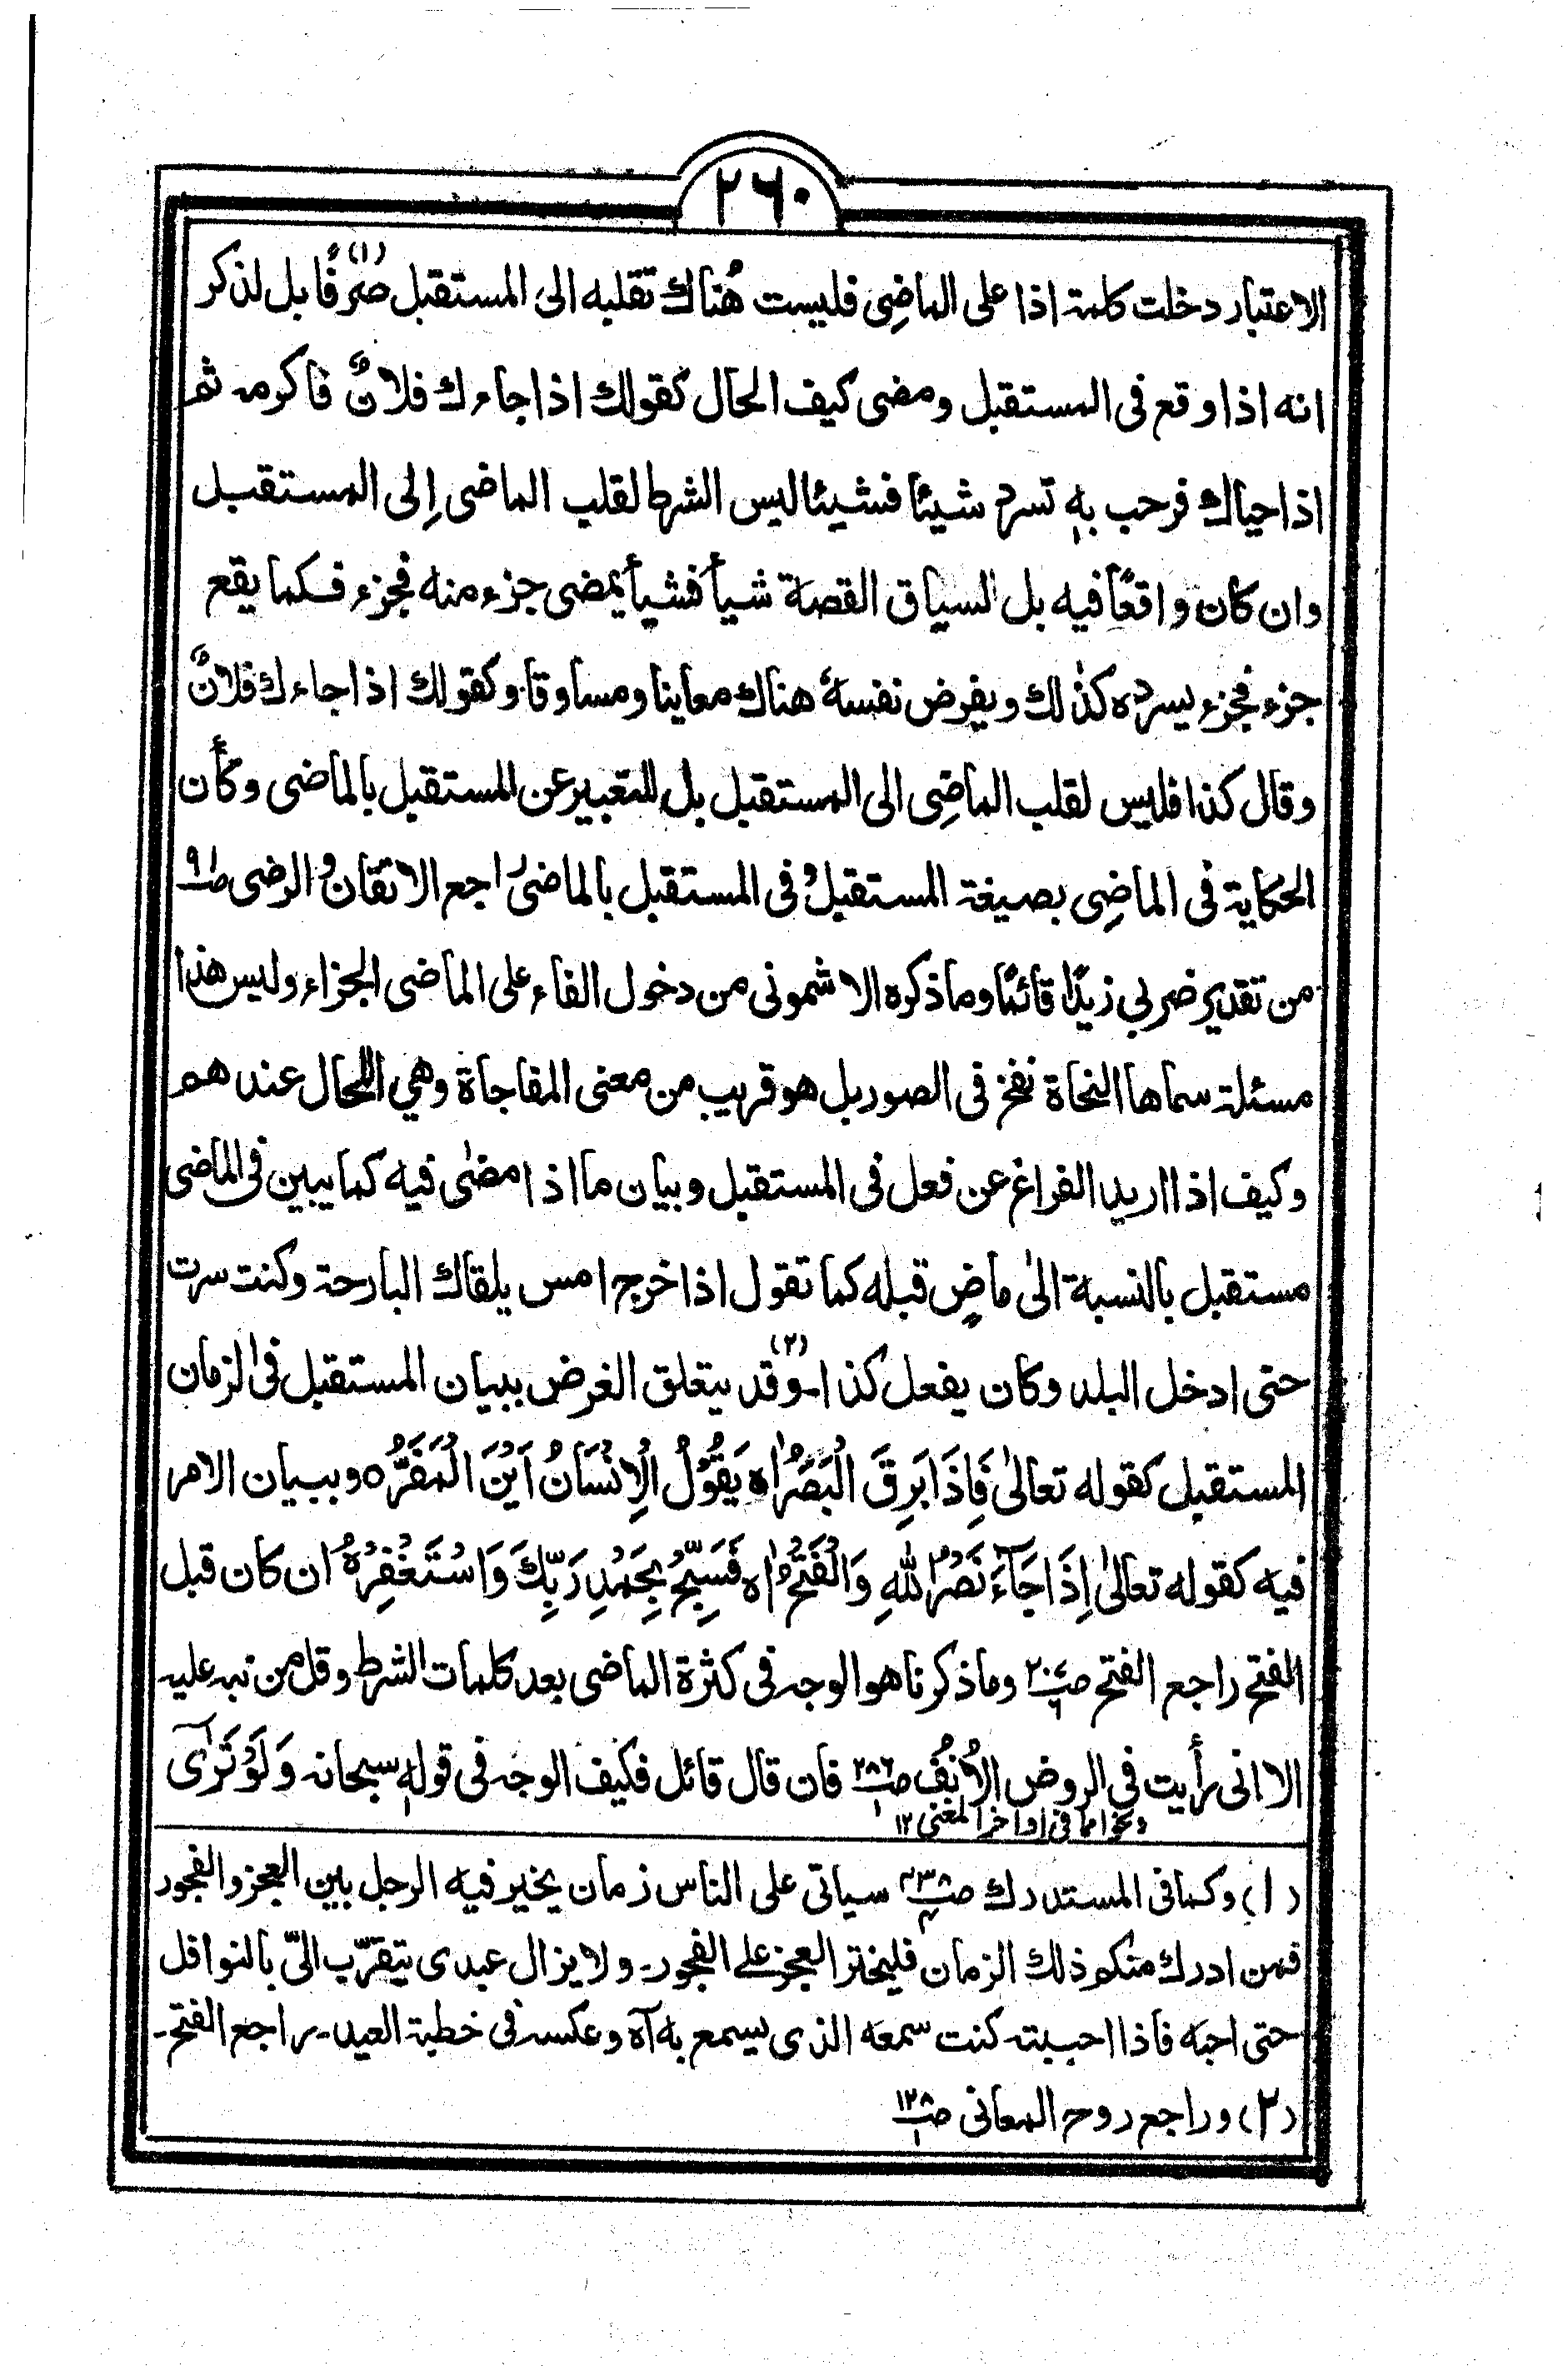 ٢٦٠
الاعتبار دخلت كلمة اذا على الماضِى فليست هُناك تقلبه الى المستقبل صرفًا(١) بل لذكر
انه اذا وقع فى المستقبل ومضى كيف الحال كقولك اذا جاءك فلانٌ فاكرمه ثم
اذا حياك فرحب به تسرد شيئًا فشيئا ليس الشرط لقلب الماضى اِلى المستقبل
وان كان واقعًا فيه بل لسياق القصة شيأ فشيأ يمضى جزء منه فجزء فكما يقع
جزء فجزء يسرده كذٰلك ويفرض نفسهٗ هناك معاينا ومساوقا وكقولك اذا جاءك فلانٌ
وقال كذا فليس لقلب الماضِى الى المستقبل بل للتعبير عن المستقبل بالماضى وكأن
الحكاية فى الماضِى بصيغة المستقبل وفى المستقبل بالماضى راجع الاتقان والرضى صـ٩
من تقدير ضربى زيدًا قائمًا وما ذكره الاشمونى من دخول الفاء على الماضى الجزاء وليس هٰذا
مسئلة سماها النحاة نفخ فى الصور بل هو قريب من معنى المفاجاة وهي للحال عندهم
وكيف اذا اريد الفراغ عن فعل فى المستقبل وبيان ما اذا مضٰى فيه كما يبين فى الماضى
مستقبل بالنسبة الىٰ ماضٍ قبله كما تقول اذا خرج امس يلقاك البارحة وكنت سرت
حتى ادخل البلد وكان يفعل كذا۔(٢) وقد يتعلق الغرض ببيان المستقبل فى الزمان
المستقبل كقوله تعالىٰ فَاِذَا بَرِقَ الْبَصَرُ اه يَقُوْلُ الْاِنْسَانُ اَيْنَ الْمَفَرُّ ه وببيان الامر
فيه كقوله تعالىٰ اِذَا جَآءَ نَصْرُ اللهِ وَالْفَتْحُ اه فَسَبِّحْ بِحَمْدِ رَبِّكَ وَاسْتَغْفِرْهُ ان كان قبل
الفتح راجع الفتح صـ وما ذكرنا هو الوجه فى كثرة الماضى بعد كلمات الشرط وقل من نبه عليه
الا انى رأيت فى الروض الاُنُف صـ٢٨٦/١ فان قال قائل فكيف الوجه فى قوله سبحانه وَلَوْ تَرٰٓى
ونحوا مما فى اواخر المغنى ١٢
(١) وكما فى المستدرك صـ٤٣٨/٤ سياتى على الناس زمان يخير فيه الرجل بين العجز والفجور
فمن ادرك منكم ذلك الزمان فليختر العجز على الفجور۔ ولا يزال عبدى يتقرّب الىّ بالنوافل
حتى احبه فاذا احببته كنت سمعه الذى يسمع به آه وعكسه فى خطبة العيد۔ راجع الفتح۔
(٢) وراجع روح المعانى صـ١٢٨/١